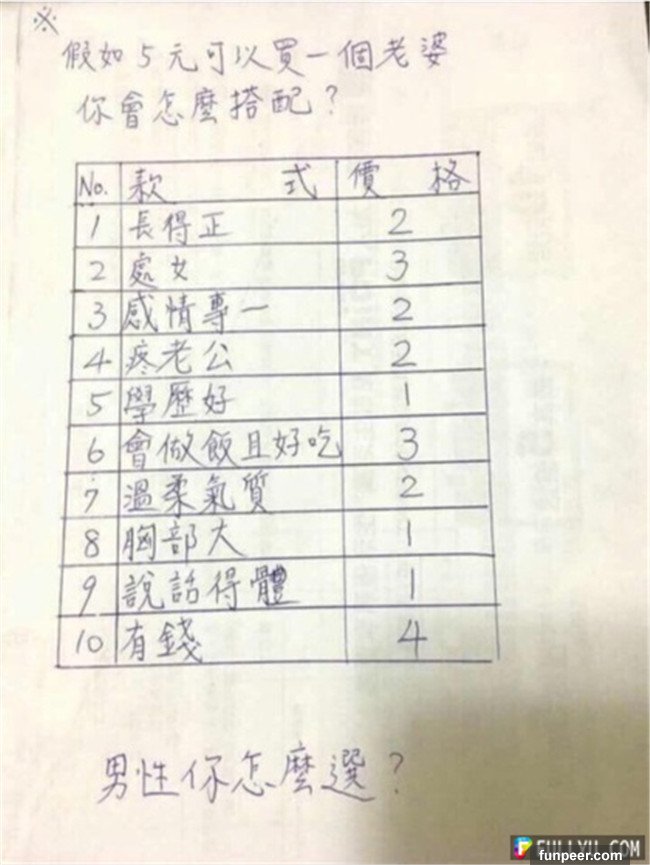 ※
假如5元可以買一個老婆
你會怎麼搭配?
No. 款式 價格
1 長得正 2
2 處女 3
3 感情專一 2
4 疼老公 2
5 學歷好 1
6 會做飯且好吃 3
7 溫柔氣質 2
8 胸部大 1
9 說話得體 1
10 有錢 4
男性你怎麼選?
FULLYU.COM
funpeer.com